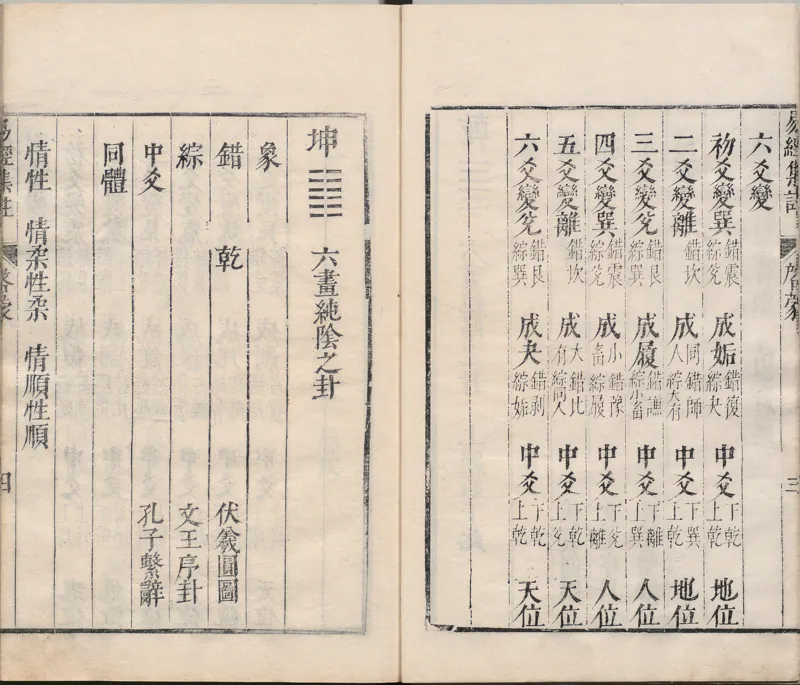 易經集註 三
六爻變
初爻變巽 錯震綜兌 成姤 錯復綜夬 中爻 下乾上乾 地位
二爻變離 錯坎 成同人 錯師綜大有 中爻 下巽上乾 地位
三爻變兌 錯艮綜巽 成履 錯謙綜小畜 中爻 下離上巽 人位
四爻變巽 錯震綜兌 成小畜 錯豫綜履 中爻 下兌上離 人位
五爻變離 錯坎 成大有 錯比綜同人 中爻 下乾上兌 天位
六爻變兌 錯艮綜巽 成夬 錯剝綜姤 中爻 下乾上乾 天位
坤 ䷁ 六畫純陰之卦
象
錯 乾 伏羲圓圖
綜 文王序卦
中爻 孔子繫辭
同體
情性 情柔性柔 情順性順
易經集註 四